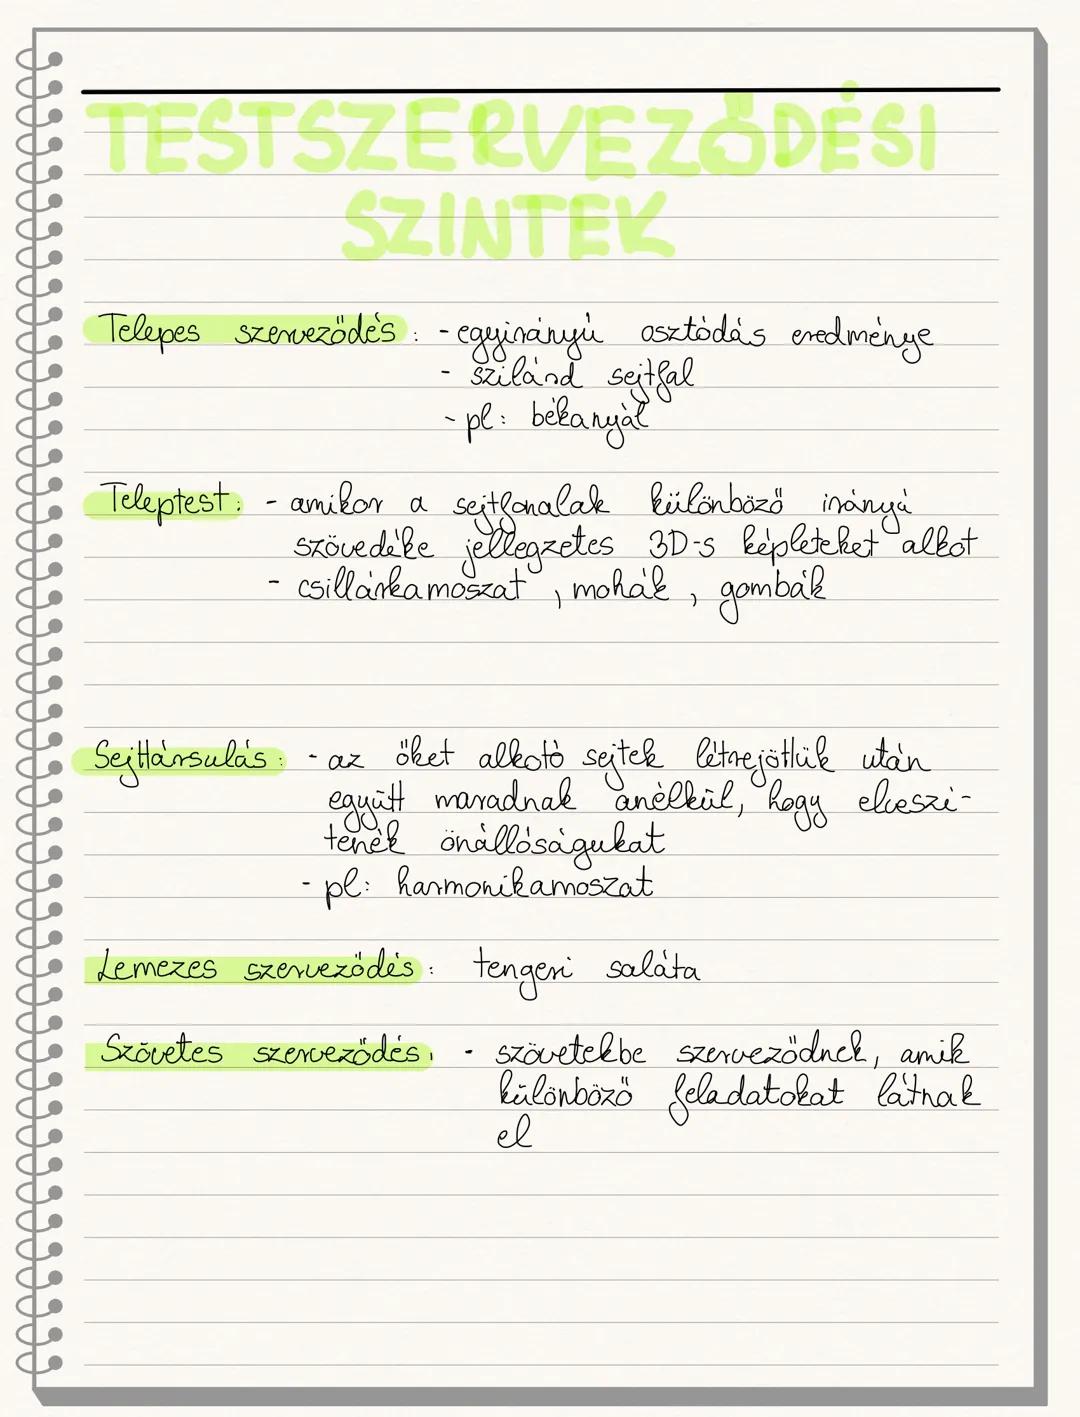 TESTSZERVEZŐDÉSI
SZINTEK
Telepes szerveződés: - egyirányú osztódás eredménye
- szilárd sejtfal
- pl: békanyál
Teleptest: - amikor a sejtfonalak különböző irányú
szövedéke jellegzetes 3D-s képleteket alkot
- csillárkamoszat, mohák, gombák
Sejttársulás: - az őket alkotó sejtek létrejöttük után
együtt maradnak anélkül, hogy elveszí-
tenék önállóságukat
- pl: harmonikamoszat
Lemezes szerveződés: tengeri saláta
Szövetes szerveződés: - szövetekbe szerveződnek, amik
különböző feladatokat látnak
el